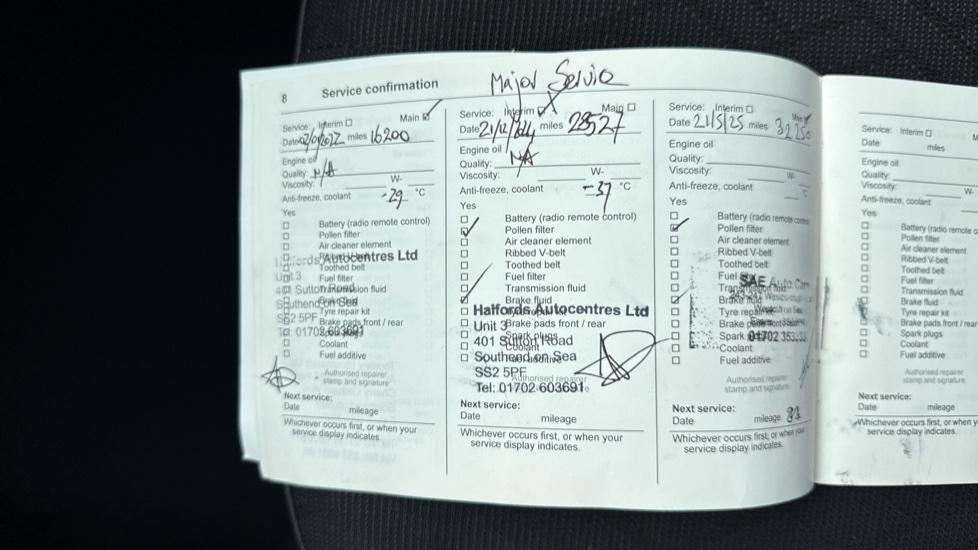 8 Service confirmation
Major Service
Service: Interim Main
Date miles 16200
Engine oil
Quality: N/A
Viscosity: W-
Anti-freeze, coolant -29 °C
Yes
Battery (radio remote control)
Pollen filter
Air cleaner element
Halfords Autocentres Ltd
Toothed belt
Unit 3 Fuel filter
401 Sutton Road
Southend on Sea
Tyre repair kit
SS2 5PF Brake pads front / rear
Tel: 01702 603691
Coolant
Fuel additive
Authorised repairer
stamp and signature
Next service:
Date mileage
Whichever occurs first, or when your
service display indicates.
Service: Interim Main
Date 21/12/24 miles 28527
Engine oil
Quality: N/A
Viscosity: W-
Anti-freeze, coolant -37 °C
Yes
Battery (radio remote control)
Pollen filter
Air cleaner element
Ribbed V-belt
Toothed belt
Fuel filter
Transmission fluid
Brake fluid
Halfords Autocentres Ltd
Unit 3 Brake pads front / rear
401 Sutton Road
Southend on Sea
SS2 5PF
Authorised repairer
Tel: 01702 603691
Next service:
Date mileage
Whichever occurs first, or when your
service display indicates.
Service: Interim Main
Date 21/5/25 miles 32250
Engine oil
Quality:
Viscosity: W-
Anti-freeze, coolant °C
Yes
Battery (radio remote
Pollen filter
Air cleaner element
Ribbed V-belt
Toothed belt
Fuel
SAE Auto
Brake fluid
Tyre repair
Brake pads
Spark 01702
Coolant
Fuel additive
Authorised repairer
stamp and signature
Next service:
Date mileage
Whichever occurs first, or when your
service display indicates.
Service: Interim
Date miles
Engine oil
Quality:
Viscosity: W-
Anti-freeze, coolant
Yes
Battery (radio remote
Pollen filter
Air cleaner element
Ribbed V-belt
Toothed belt
Fuel filter
Transmission fluid
Brake fluid
Tyre repair kit
Brake pads front / rear
Spark plugs
Coolant
Fuel additive
Authorised repairer
stamp and signature
Next service:
Date mileage
Whichever occurs first, or when
service display indicates.